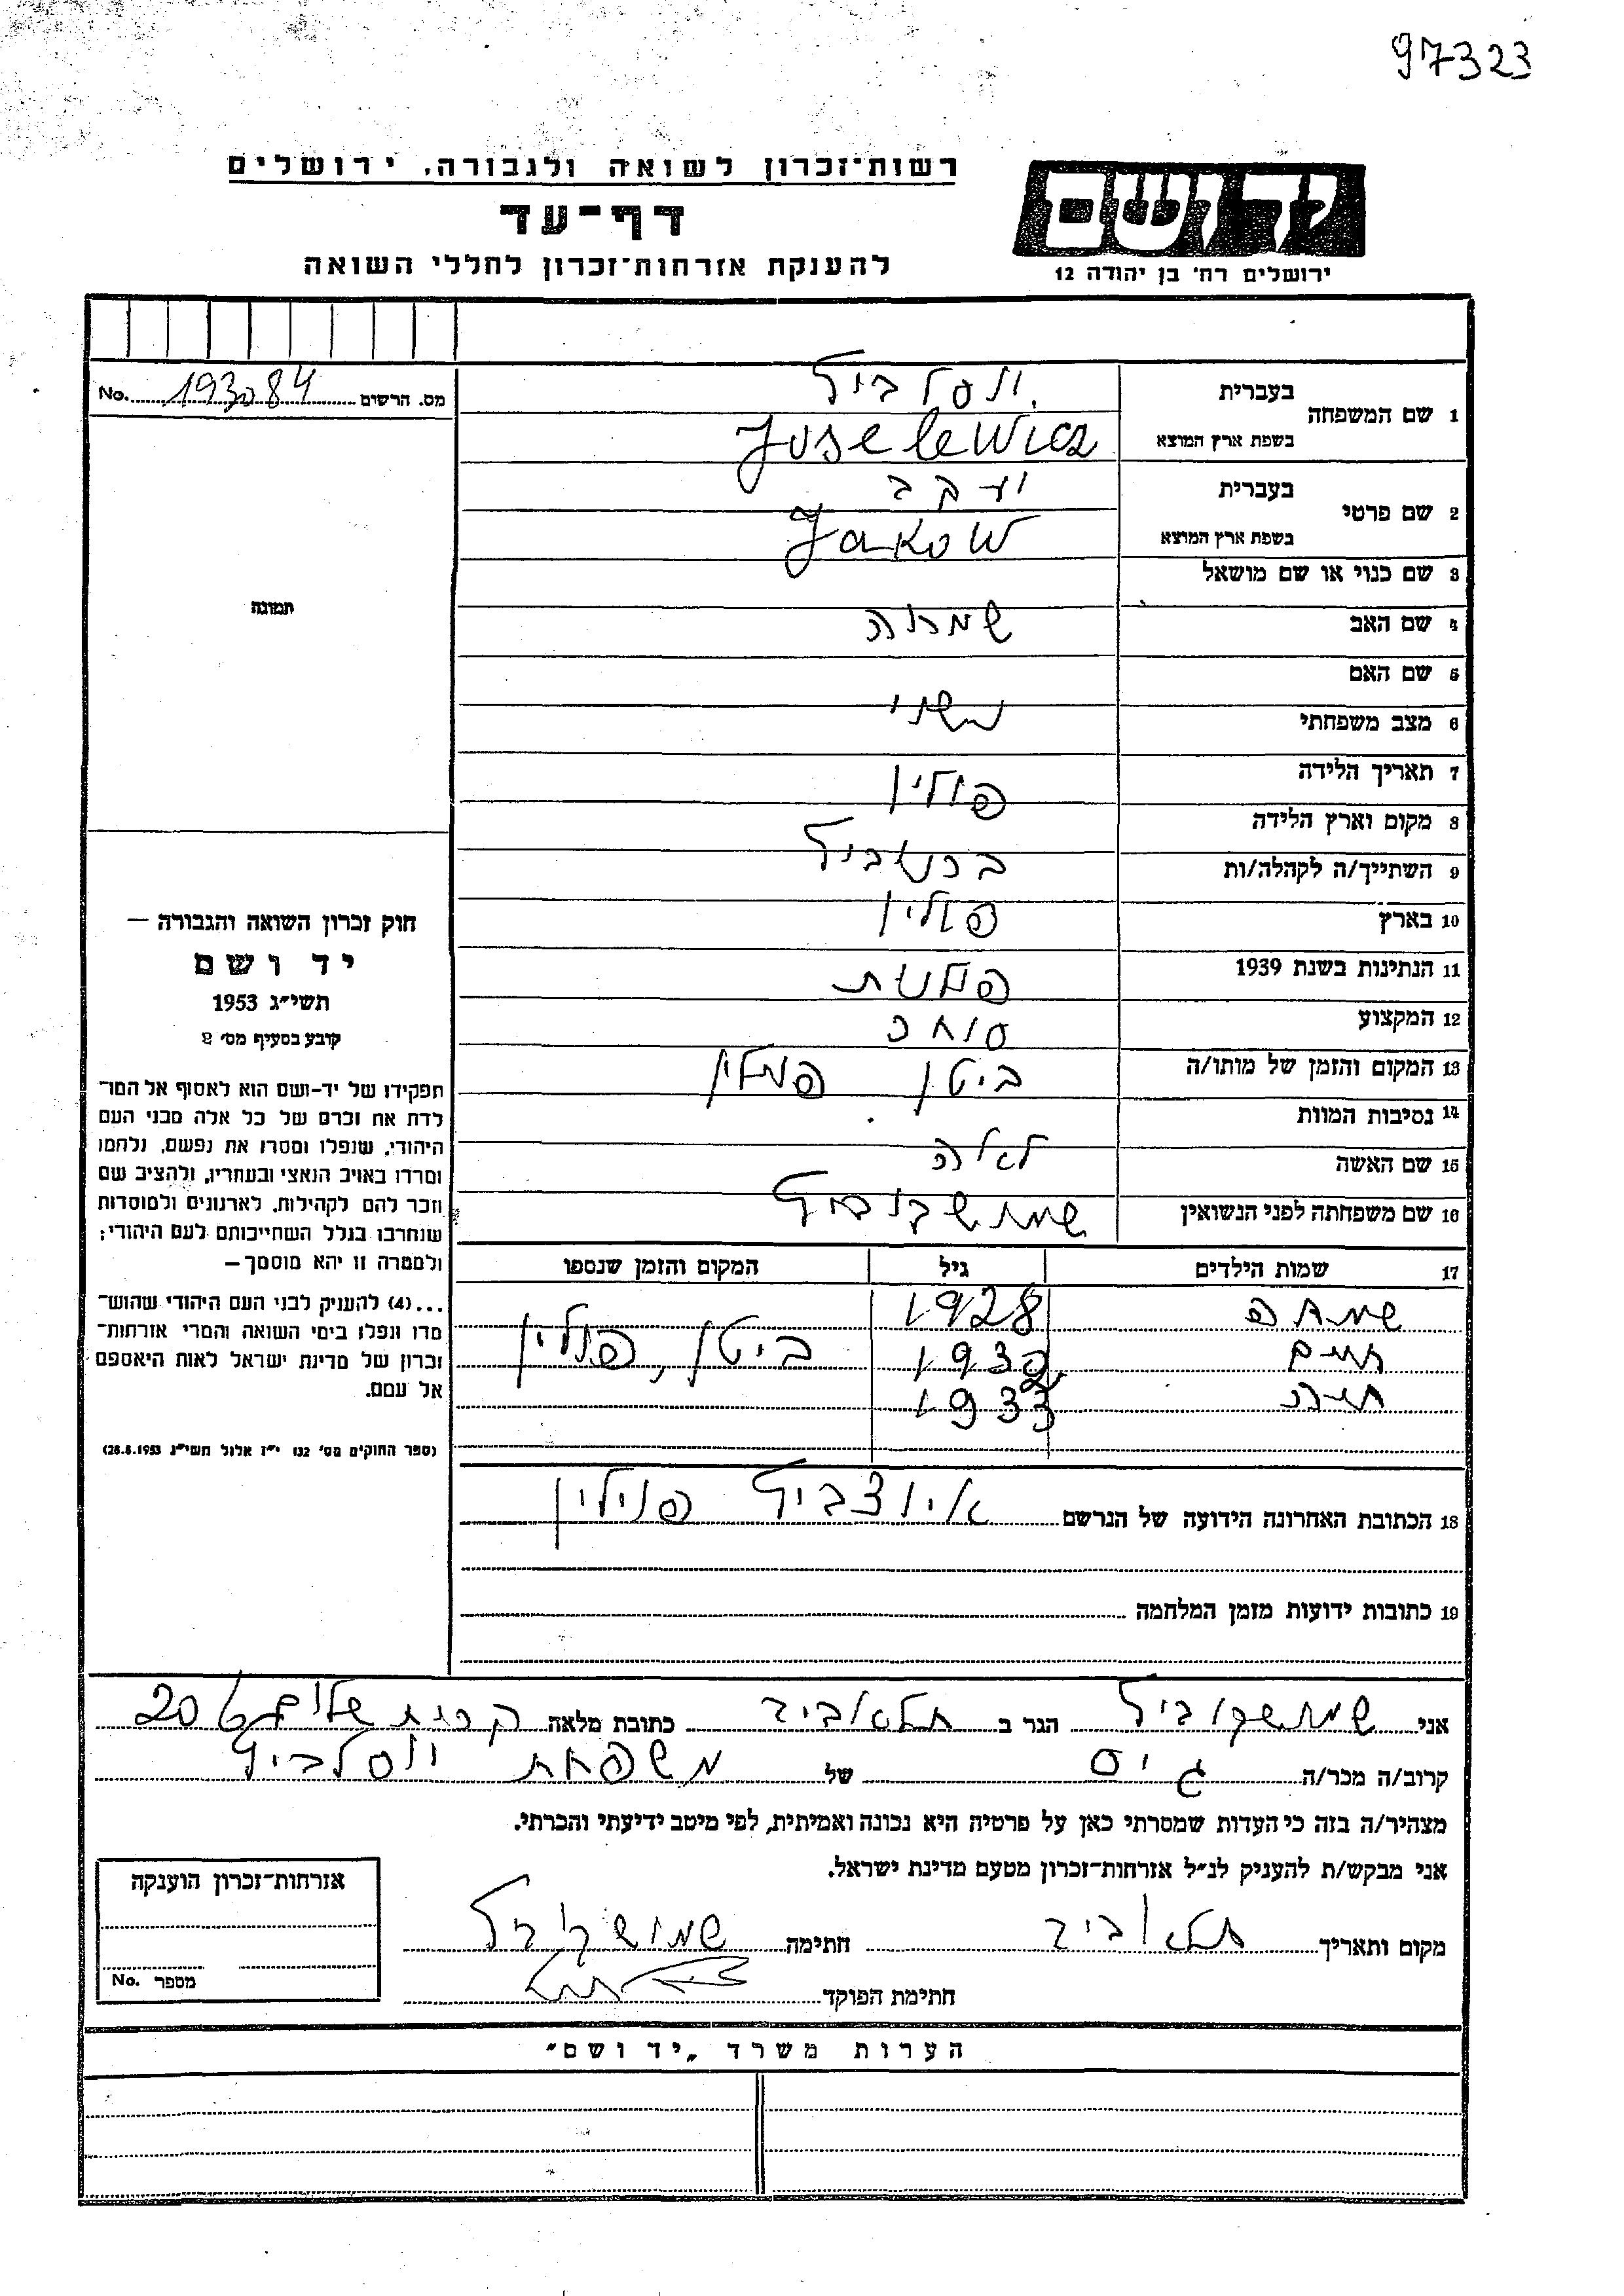 97323
רשות־זכרון לשואה ולגבורה, ירושלים
דף־עד
להענקת אזרחות־זכרון לחללי השואה
יד ושם
ירושלים רח' בן יהודה 12
מס. הרשים 193084 No.
1 שם המשפחה
בעברית
בשפת ארץ המוצא Joselewicz
2 שם פרטי
בעברית יעקב
בשפת ארץ המוצא Jakow
3 שם כנוי או שם מושאל
4 שם האב שמחה
5 שם האם
6 מצב משפחתי נשוי
7 תאריך הלידה
8 מקום וארץ הלידה פולין
9 השתייך/ה לקהלה/ות
10 בארץ פולין
11 הנתינות בשנת 1939 פולנית
12 המקצוע סוחר
13 המקום והזמן של מותו/ה פולין
14 נסיבות המוות
15 שם האשה לאה
16 שם משפחתה לפני הנשואין
17 שמות הילדים גיל המקום והזמן שנספו
שמחה 1928
חיים 1930 פולין
1933
18 הכתובת האחרונה הידועה של הנרשם פולין
19 כתובות ידועות מזמן המלחמה
תמונה
חוק זכרון השואה והגבורה —
יד ושם
תשי"ג 1953
קובע בסעיף מס' 2
תפקידו של יד-ושם הוא לאסוף אל המו־
לדת את זכרם של כל אלה מבני העם
היהודי, שנפלו ומסרו את נפשם, נלחמו
ומרדו באויב הנאצי ובעוזריו, ולהציב שם
וזכר להם לקהילות, לארגונים ולמוסדות
שנחרבו בגלל השתייכותם לעם היהודי;
ולמטרה זו יהא מוסמך —
...(4) להעניק לבני העם היהודי שהוש־
מדו ונפלו בימי השואה והמרי אזרחות־
זכרון של מדינת ישראל לאות היאספם
אל עמם.
(ספר החוקים מס' 132 י"ז אלול תשי"ג 28.8.1953)
אני הגר ב תל אביב כתובת מלאה קרית שלום 20
קרוב/ה מכר/ה גיס של משפחת
מצהיר/ה בזה כי העדות שמסרתי כאן על פרטיה היא נכונה ואמיתית, לפי מיטב ידיעתי והכרתי.
אני מבקש/ת להעניק לנ"ל אזרחות־זכרון מטעם מדינת ישראל.
מקום ותאריך תל אביב חתימה
חתימת הפוקד
אזרחות־זכרון הוענקה
מספר No.
הערות משרד „יד ושם"